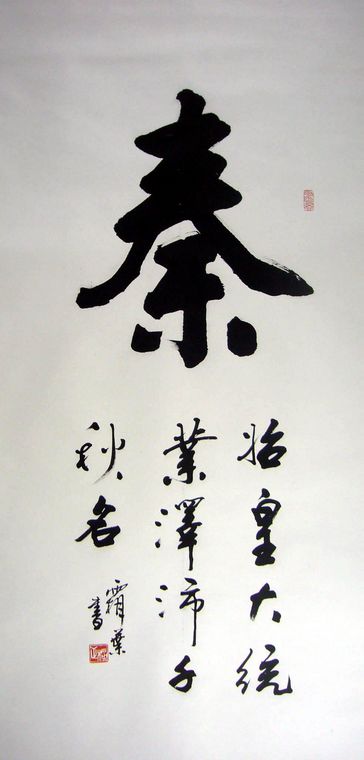 秦
始皇大統
業澤沛千
秋名
霜葉
書